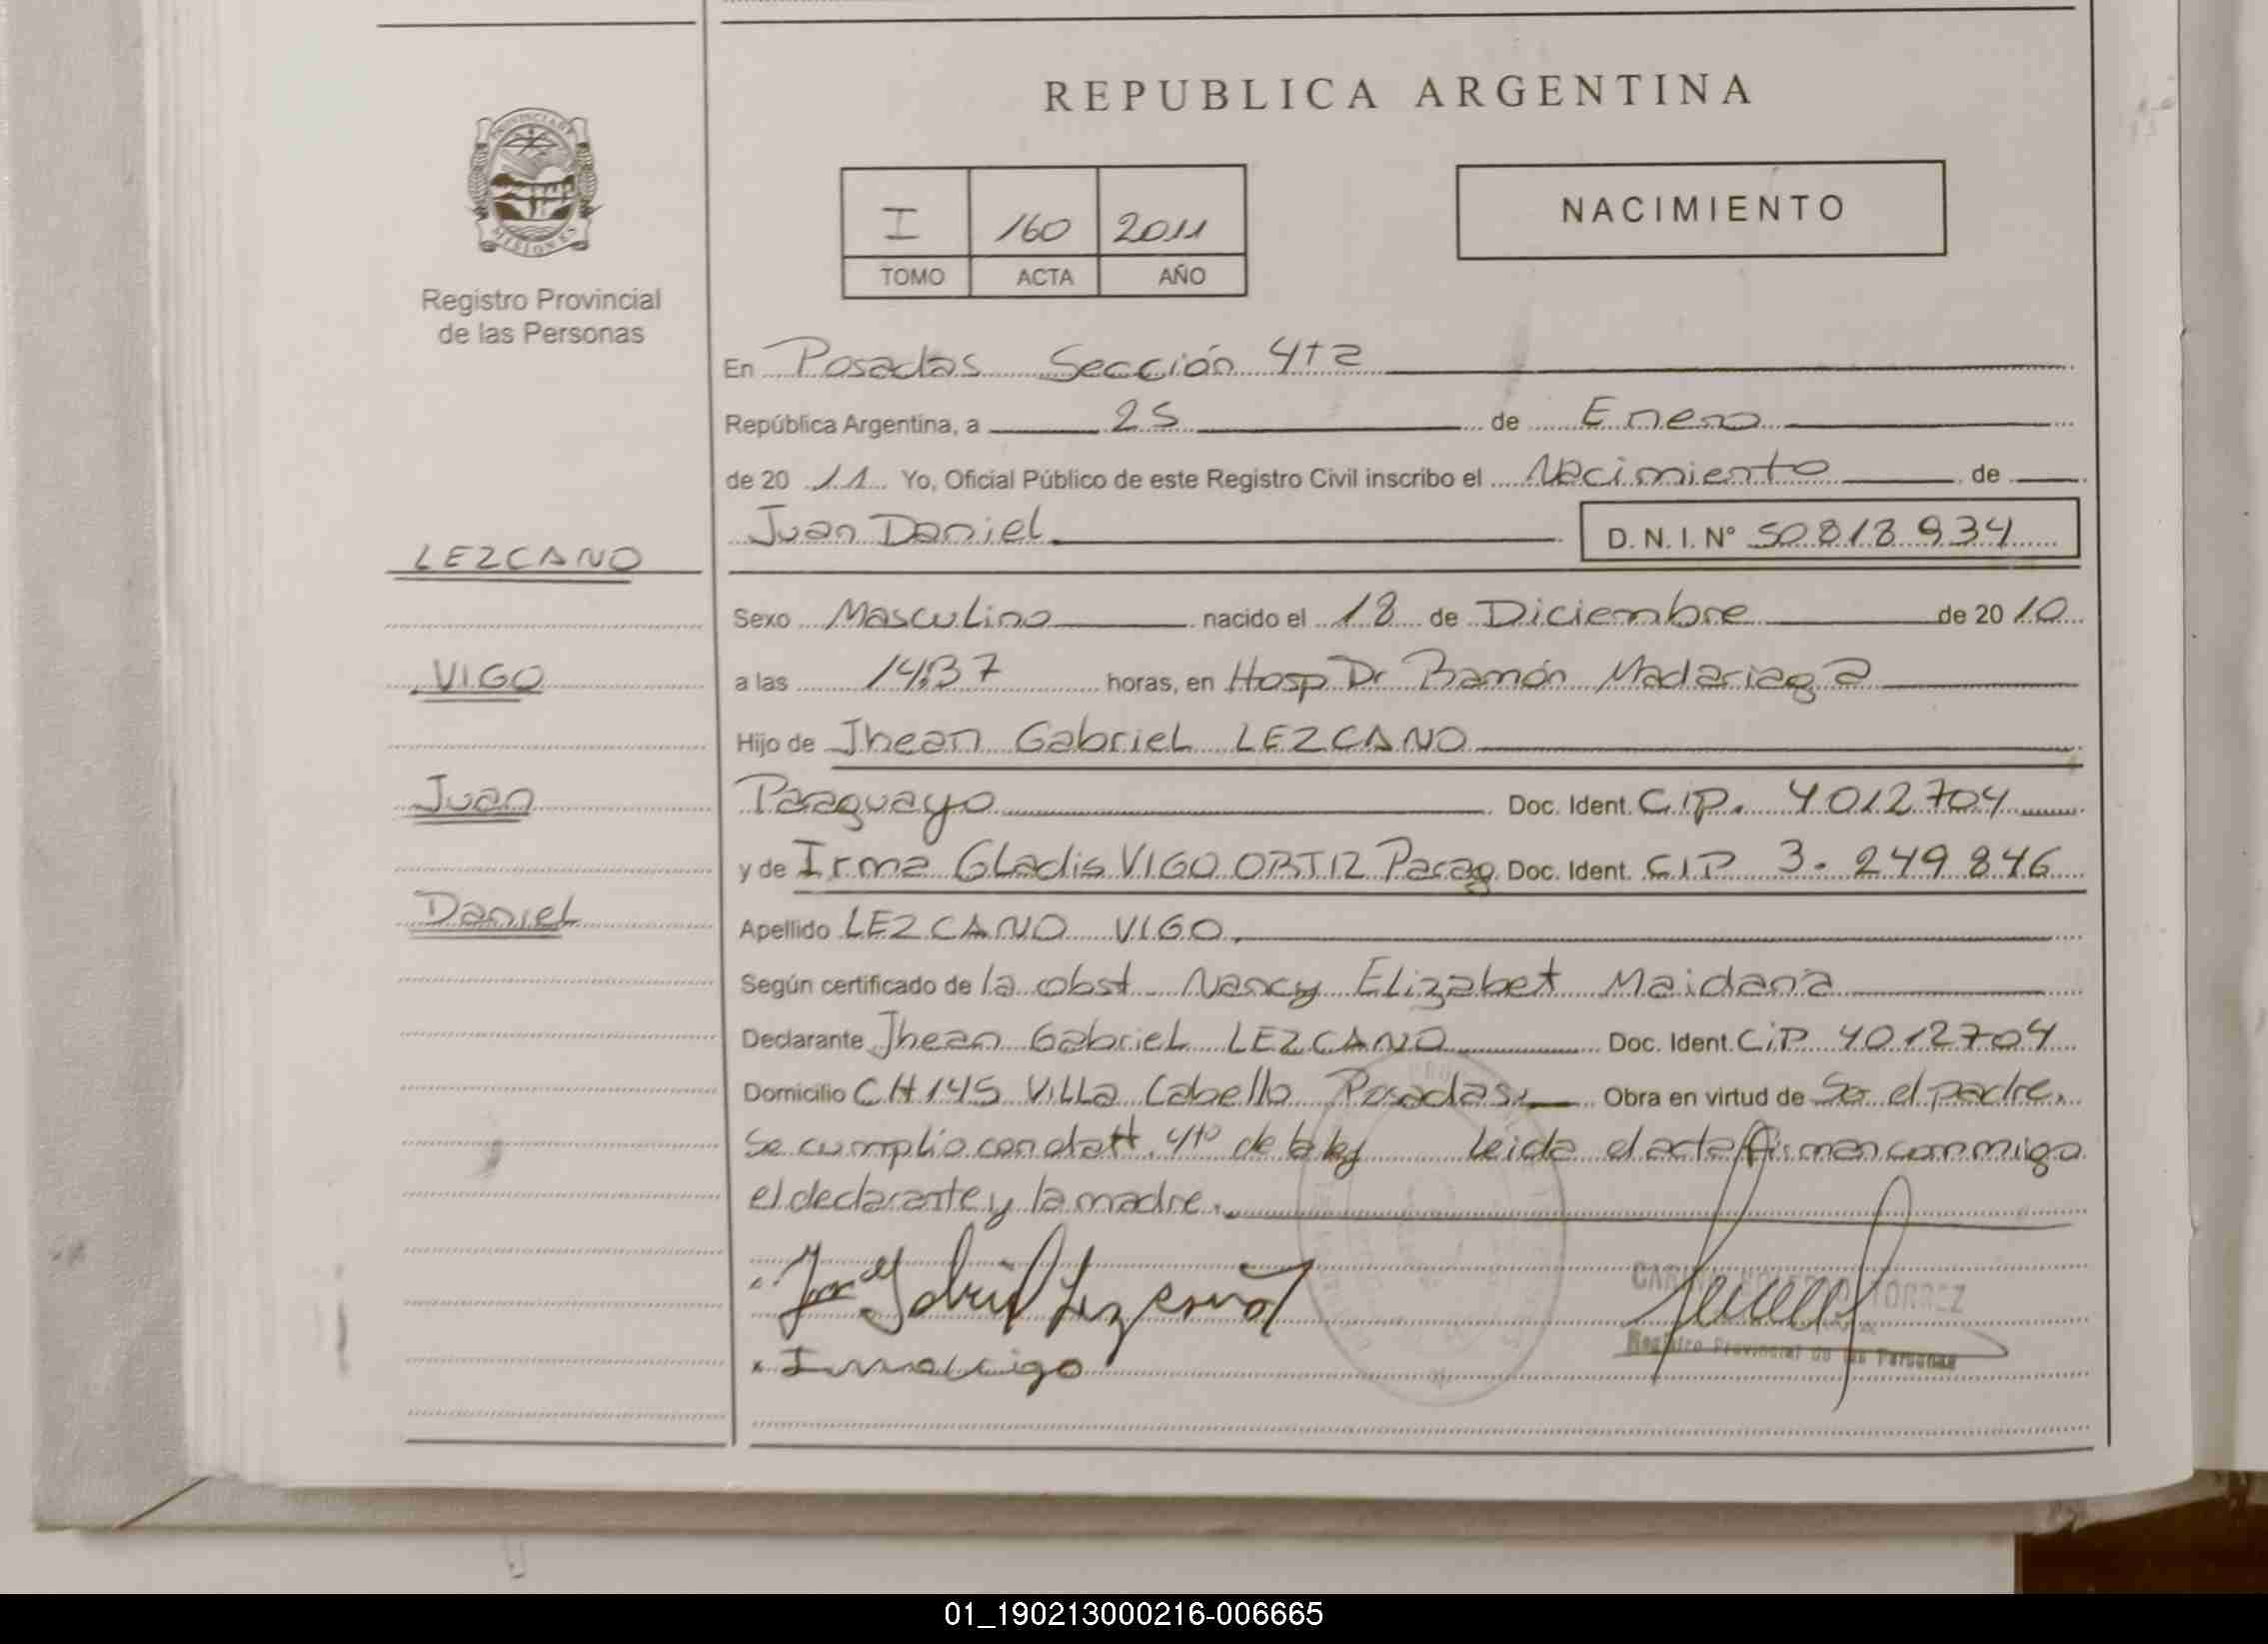 REPUBLICA ARGENTINA
PROVINCIA DE MISIONES
Registro Provincial
de las Personas
I 160 2011
TOMO ACTA AÑO
NACIMIENTO
En Posadas Sección 4ta
República Argentina, a 25 de Enero
de 20 11 Yo, Oficial Público de este Registro Civil inscribo el Nacimiento de
Juan Daniel D.N.I. Nº 50 818 934
LEZCANO
VIGO
Juan
Daniel
Sexo Masculino nacido el 18 de Diciembre de 20 10
a las 14:37 horas, en Hosp Dr Ramón Madariaga
Hijo de Jhean Gabriel LEZCANO
Paraguayo Doc. Ident. C.I.P. 4012704
y de Irma Gladis VIGO ORTIZ Parag Doc. Ident. CIP 3.249846
Apellido LEZCANO VIGO.
Según certificado de la obst Nancy Elizabet Maidana
Declarante Jhean Gabriel LEZCANO Doc. Ident. CIP 4012704
Domicilio CH 145 Villa Cabello Posadas. Obra en virtud de Ser el padre.
Se cumplio con el art. 4to de la ley leida el acta firman conmigo
el declarante y la madre.
Gabriel Lezcano
Irma Vigo
TORREZ
Registro Provincial de las Personas
01_190213000216-006665